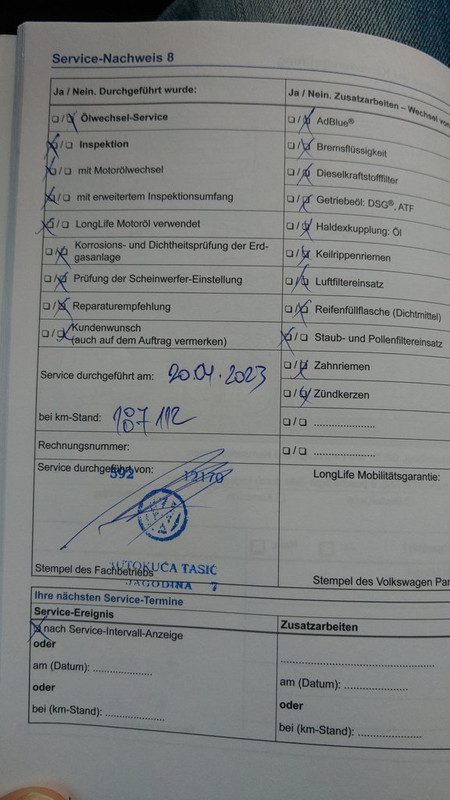 Service-Nachweis 8
Ja / Nein. Durchgeführt wurde:
❑ / ❑ Ölwechsel-Service
❑ / ❑ Inspektion
❑ / ❑ mit Motorölwechsel
❑ / ❑ mit erweitertem Inspektionsumfang
❑ / ❑ LongLife Motoröl verwendet
❑ / ❑ Korrosions- und Dichtheitsprüfung der Erd-
gasanlage
❑ / ❑ Prüfung der Scheinwerfer-Einstellung
❑ / ❑ Reparaturempfehlung
❑ / ❑ Kundenwunsch
(auch auf dem Auftrag vermerken)
Service durchgeführt am: 20.04.2023
bei km-Stand: 187 112
Rechnungsnummer:
Service durchgeführt von:
592 12170
AUTOKUĆA TASIĆ
Stempel des Fachbetriebs
JAGODINA 7
Ja / Nein. Zusatzarbeiten – Wechsel von
❑ / ❑ AdBlue®
❑ / ❑ Bremsflüssigkeit
❑ / ❑ Dieselkraftstofffilter
❑ / ❑ Getriebeöl: DSG®, ATF
❑ / ❑ Haldexkupplung: Öl
❑ / ❑ Keilrippenriemen
❑ / ❑ Luftfiltereinsatz
❑ / ❑ Reifenfüllflasche (Dichtmittel)
❑ / ❑ Staub- und Pollenfiltereinsatz
❑ / ❑ Zahnriemen
❑ / ❑ Zündkerzen
❑ / ❑ .....................
❑ / ❑ .....................
LongLife Mobilitätsgarantie:
Stempel des Volkswagen Par
Ihre nächsten Service-Termine
Service-Ereignis
❑ nach Service-Intervall-Anzeige
oder
am (Datum): ....................
oder
bei (km-Stand): ....................
Zusatzarbeiten
....................................................
am (Datum): .....................
oder
bei (km-Stand): .....................